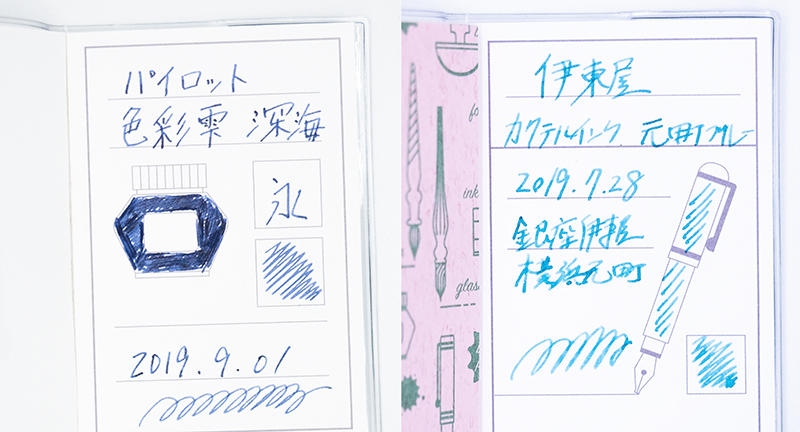 パイロット
色彩雫 深海
永
2019.9.01
fo
ink
glas
伊東屋
カクテルインク 元町ブルー
2019.7.28
銀座伊東屋
横浜元町